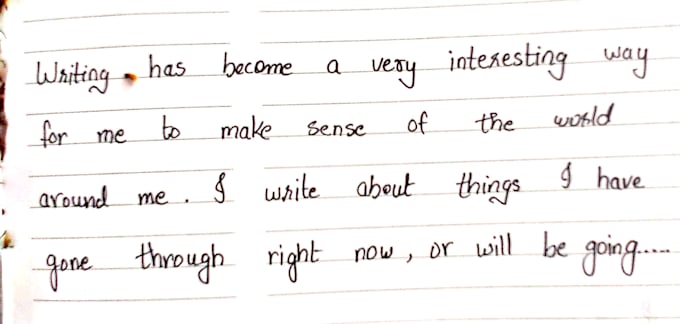 Writing has become a very interesting way
for me to make sense of the world
around me. I write about things I have
gone through right now, or will be going.....